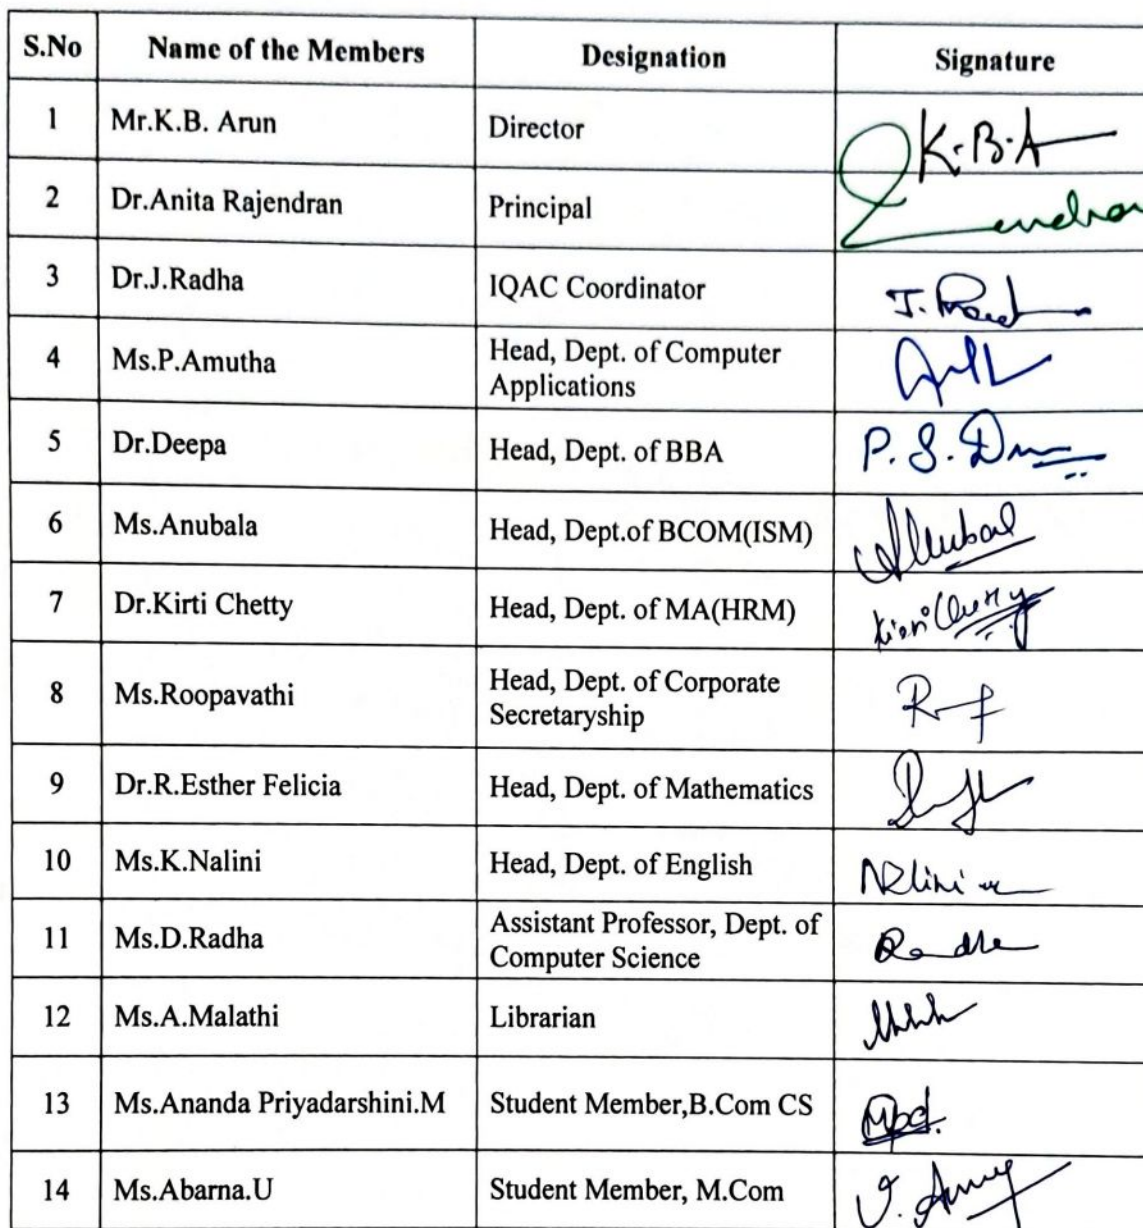 S.No Name of the Members Designation Signature
1 Mr.K.B. Arun Director K.B.A
2 Dr.Anita Rajendran Principal
3 Dr.J.Radha IQAC Coordinator
4 Ms.P.Amutha Head, Dept. of Computer
Applications
5 Dr.Deepa Head, Dept. of BBA
6 Ms.Anubala Head, Dept.of BCOM(ISM)
7 Dr.Kirti Chetty Head, Dept. of MA(HRM)
8 Ms.Roopavathi Head, Dept. of Corporate
Secretaryship
9 Dr.R.Esther Felicia Head, Dept. of Mathematics
10 Ms.K.Nalini Head, Dept. of English
11 Ms.D.Radha Assistant Professor, Dept. of
Computer Science
12 Ms.A.Malathi Librarian
13 Ms.Ananda Priyadarshini.M Student Member,B.Com CS
14 Ms.Abarna.U Student Member, M.Com